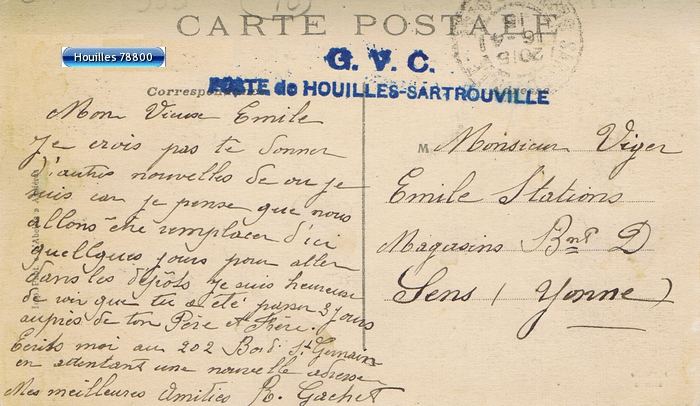 CARTE POSTALE
Houilles 78800
G. V. C.
POSTE de HOUILLES-SARTROUVILLE
Correspondance
Mon Vieux Emile
Je crois pas te donner
d'autres nouvelles de ou je
suis car je pense que nous
allons être remplacer d'ici
quelques jours pour aller
dans les dépôts je suis heureuse
de voir que tu a été passer 3 jours
auprès de ton Père et Frère.
Ecrits moi au 202 Bord. St Germain
en attentant une nouvelle adresse
Mes meilleures Amitiés R. Gachet
M Monsieur Viger
Emile Stations
Magasins Bnt D
Sens (Yonne)